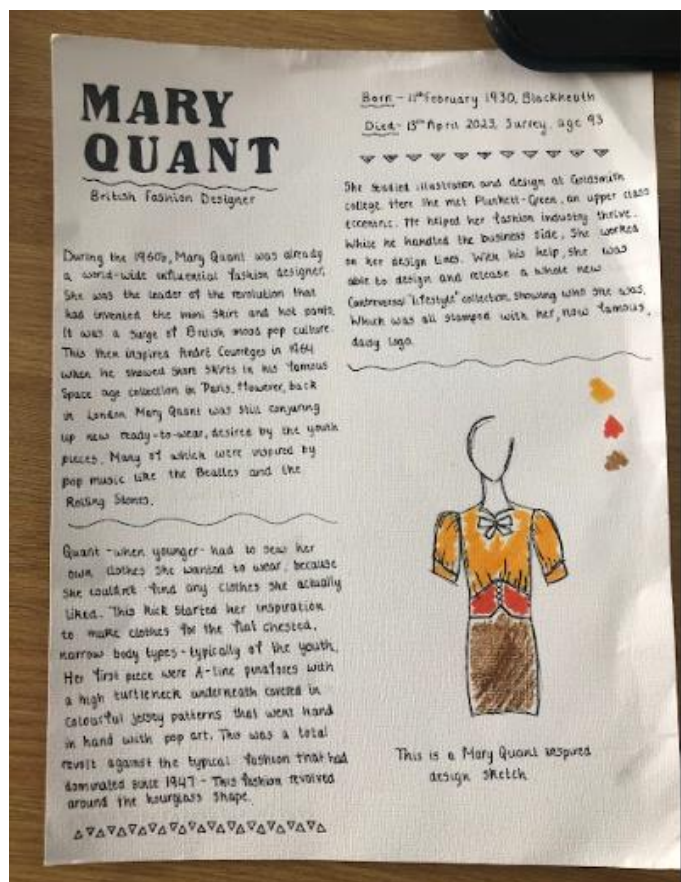 MARY
QUANT
British Fashion Designer
During the 1960s, Mary Quant was already
a world-wide influential fashion designer,
She was the leader of the revolution that
had invented the mini skirt and hot pants.
It was a surge of British mood pop culture.
This then inspired André Courrèges in 1964
when he showed short skirts in his famous
Space age collection in Paris. However, back
in London Mary Quant was still conjuring
up new ready-to-wear, desired by the youth
pieces. Many of which were inspired by
pop music like the Beatles and the
Rolling Stones.
Quant -when younger- had to sew her
own clothes she wanted to wear, because
she couldn't find any clothes she actually
liked. This kick started her inspiration
to make clothes for the flat chested,
narrow body types - typically of the youth.
Her first piece were A-line pinafores with
a high turtleneck underneath covered in
colourful jersey patterns that went hand
in hand with pop art. This was a total
revolt against the typical fashion that had
dominated since 1947 - This fashion revolved
around the hourglass shape.
Born - 11th February 1930, Blackheath
Died - 13th April 2023, Surrey, age 93
She studied illustration and design at Goldsmith
college. Here she met Plunkett-Green, an upper class
eccentric. He helped her fashion industry thrive.
While he handled the business side, She worked
on her design lines. With his help, she was
able to design and release a whole new
Controversal "lifestyle" collection, showing who she was.
Which was all stamped with her, now famous,
daisy logo.
This is a Mary Quant inspired
design sketch